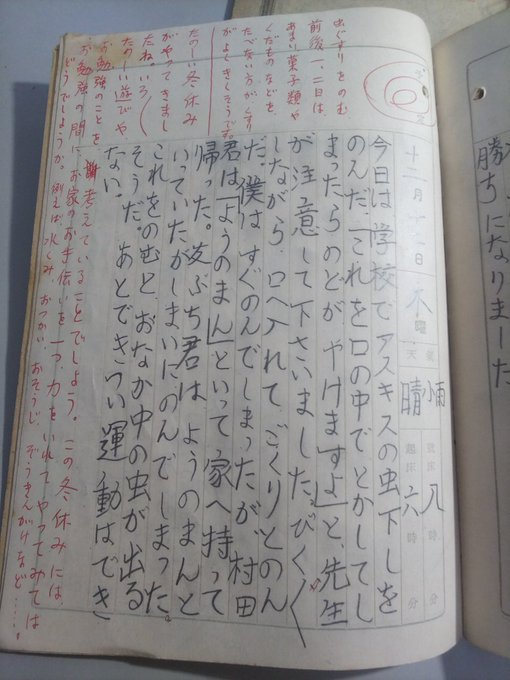 十二月十二日
木曜
天気
晴小雨
就床八時分
起床六時分
今日は学校でアスキスの虫下しを
のんだ。「これを口の中でとかしてし
まったらのどがやけますよ」と、先生
が注意して下さいました。びくく
しながら、口へ入れて、ごくりとのん
だ。僕はすぐのんでしまったが、村田
君は「ようのまん」といって家へ持って
帰った。岩ぶち君はようのまんと
いっていたがしまいにのんでしまった。
これをのむと、おなか中の虫が出る
そうだ。あとできつい運動はでき
ない。
虫ぐすりをのむ
前後一、二日は、
あまい菓子類や
くだものなどを
たべない方が、くすり
がよくきくそうです。
たのしい冬休み
がやってきまし
たね。いろく
たのしい遊びや
お勉強のことを考えていることでしよう。この冬休みには、
お勉強の間に、お家のお手伝いを一つ、力をいれてやってみては
どうでしようか。例えば、水くみ、おつかい、おそうじ、ぞうきんがけなど……。
勝ちになりました